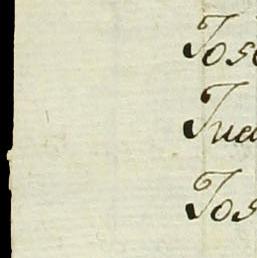 Jos
Jua
Jos